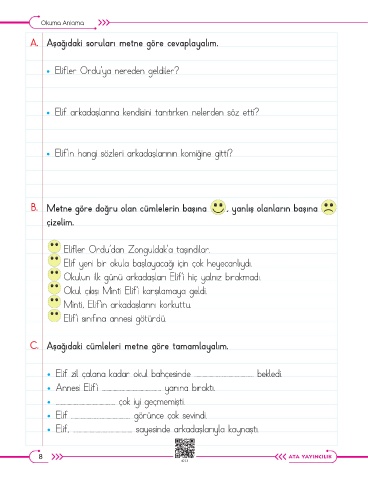 Okuma Anlama
A. Aşağıdaki soruları metne göre cevaplayalım.
• Elifler Ordu'ya nereden geldiler?
• Elif arkadaşlarına kendisini tanıtırken nelerden söz etti?
• Elif'in hangi sözleri arkadaşlarının komiğine gitti?
B. Metne göre doğru olan cümlelerin başına , yanlış olanların başına
çizelim.
Elifler Ordu'dan Zonguldak'a taşındılar.
Elif yeni bir okula başlayacağı için çok heyecanlıydı.
Okulun ilk günü arkadaşları Elif'i hiç yalnız bırakmadı.
Okul çıkışı Minti Elif'i karşılamaya geldi.
Minti, Elif'in arkadaşlarını korkuttu.
Elif'i sınıfına annesi götürdü.
C. Aşağıdaki cümleleri metne göre tamamlayalım.
• Elif zil çalana kadar okul bahçesinde ........................ bekledi.
• Annesi Elif'i ........................ yanına bıraktı.
• ........................ çok iyi geçmemişti.
• Elif ........................ görünce çok sevindi.
• Elif, ........................ sayesinde arkadaşlarıyla kaynaştı.
8
ATA YAYINCILIK